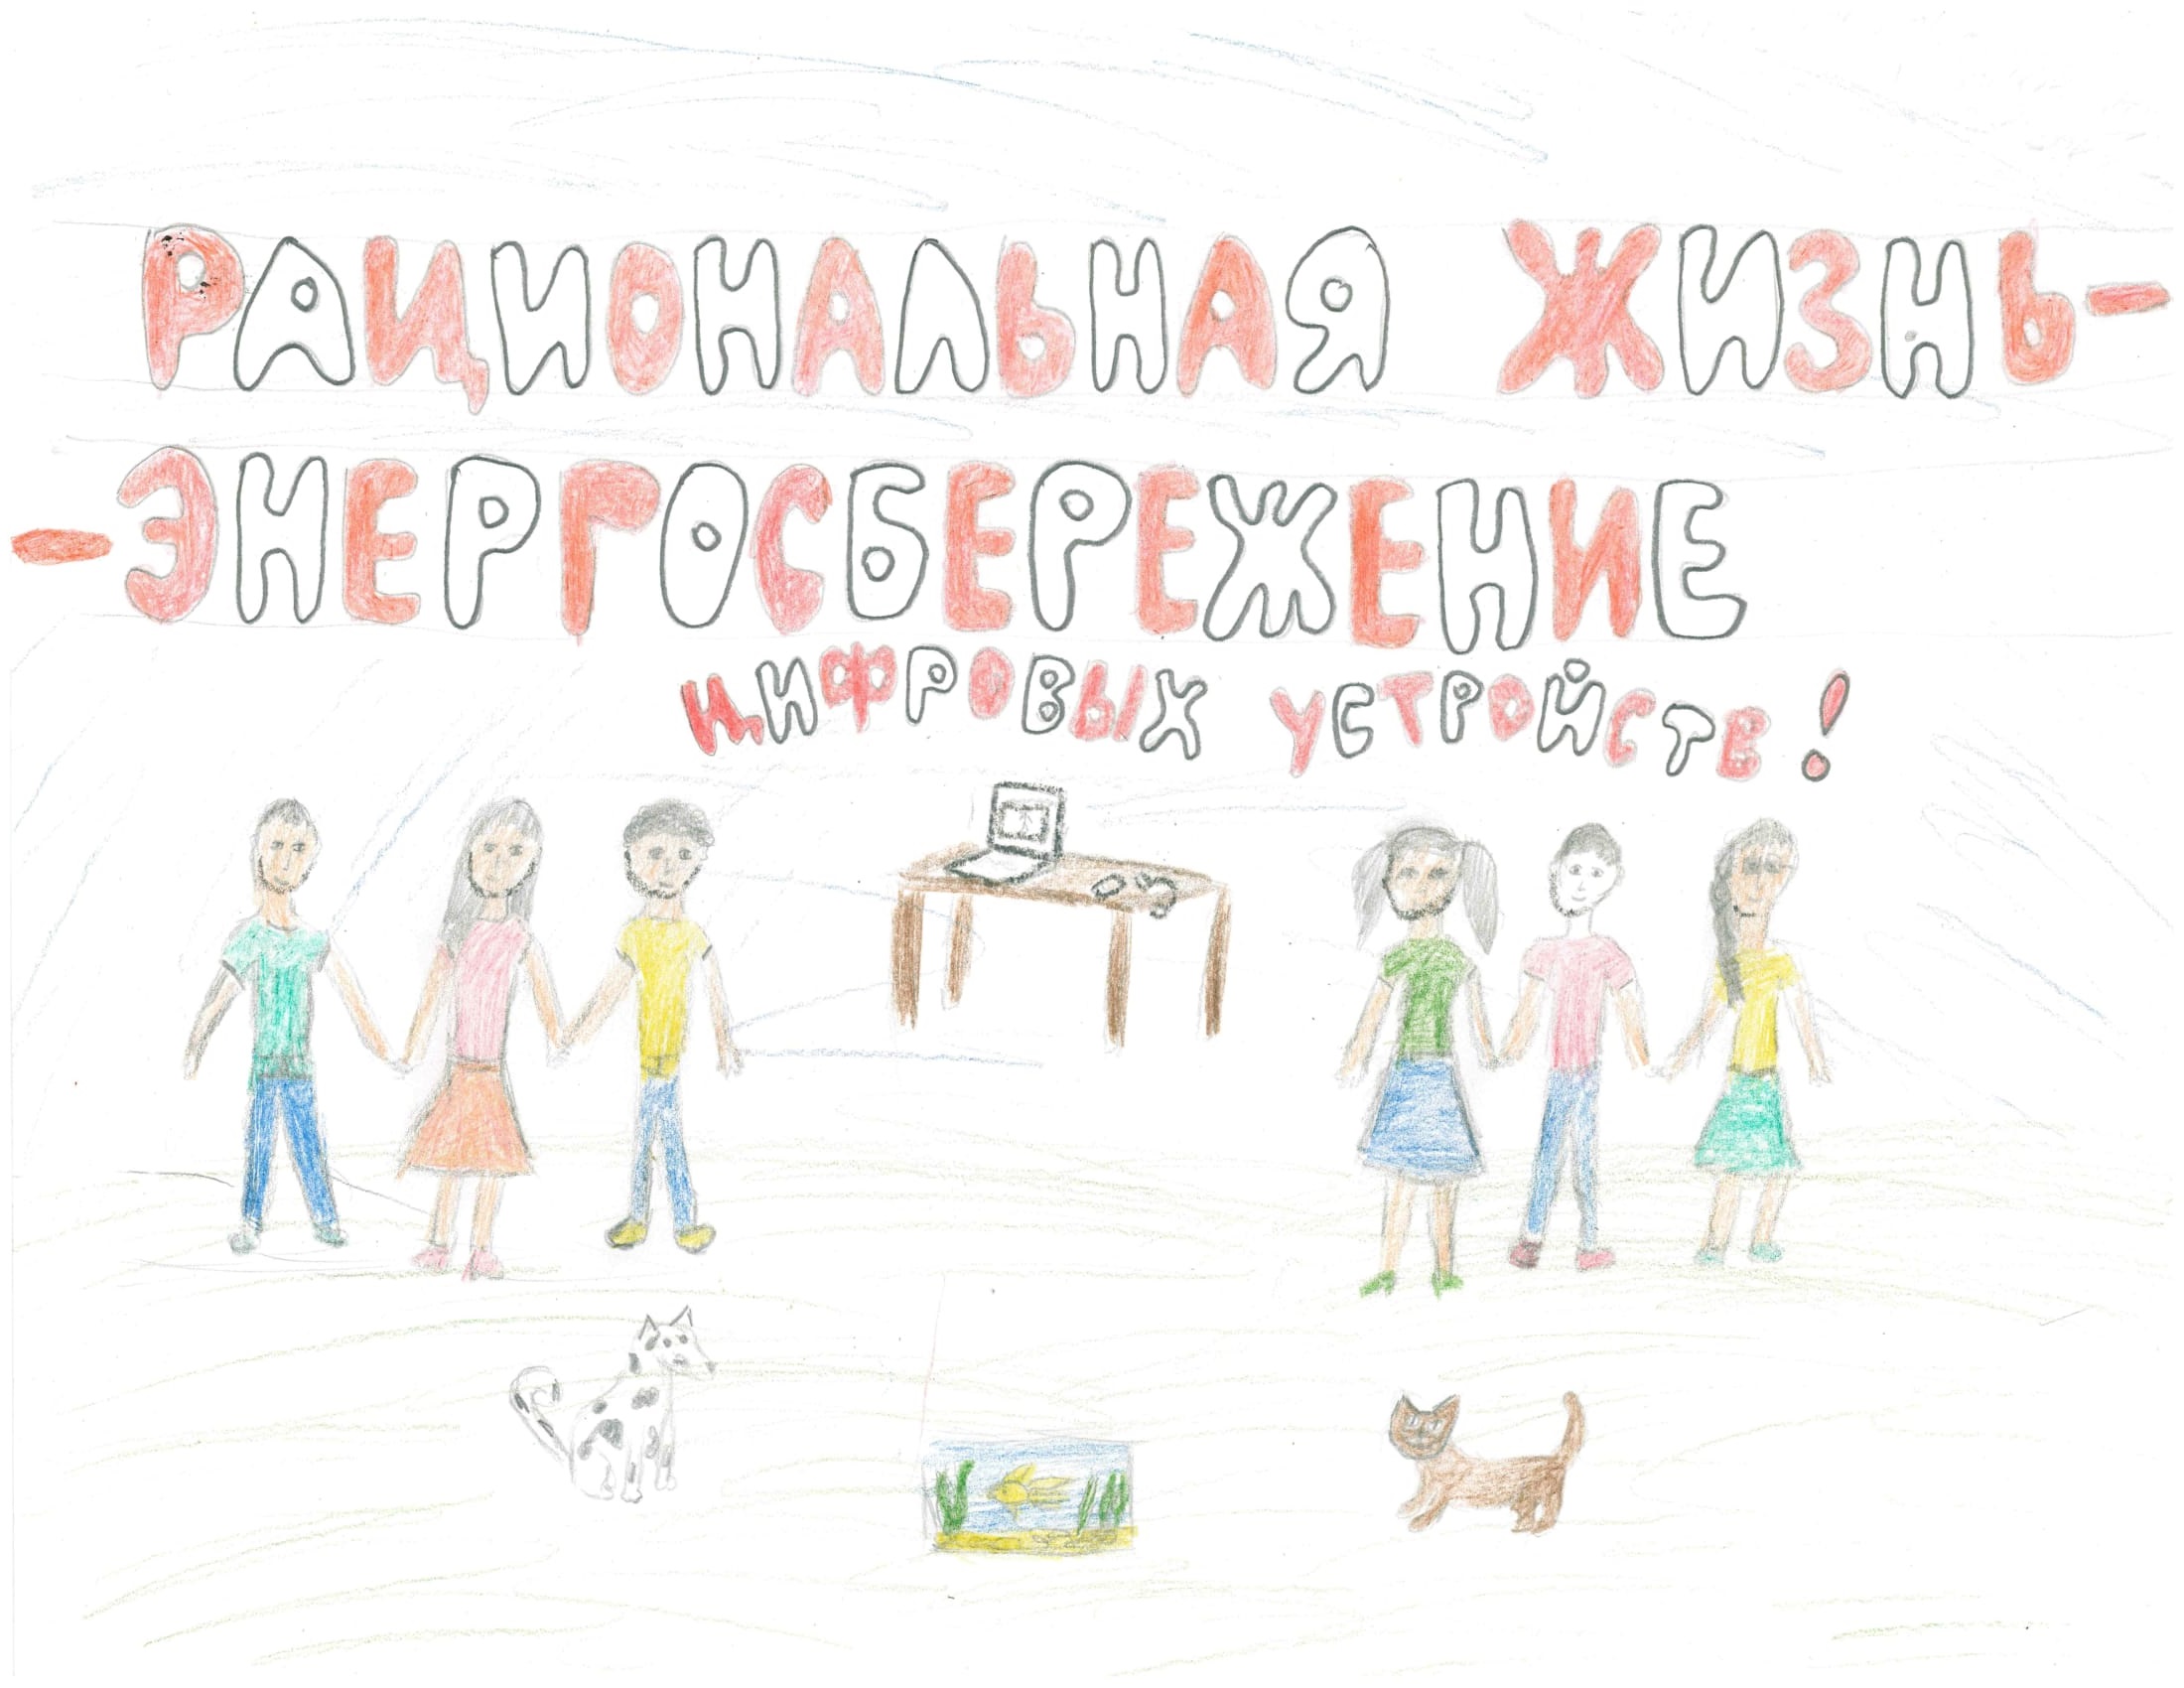 РАЦИОНАЛЬНАЯ ЖИЗНЬ-
-ЭНЕРГОСБЕРЕЖЕНИЕ
ЦИФРОВЫХ УСТРОЙСТВ!